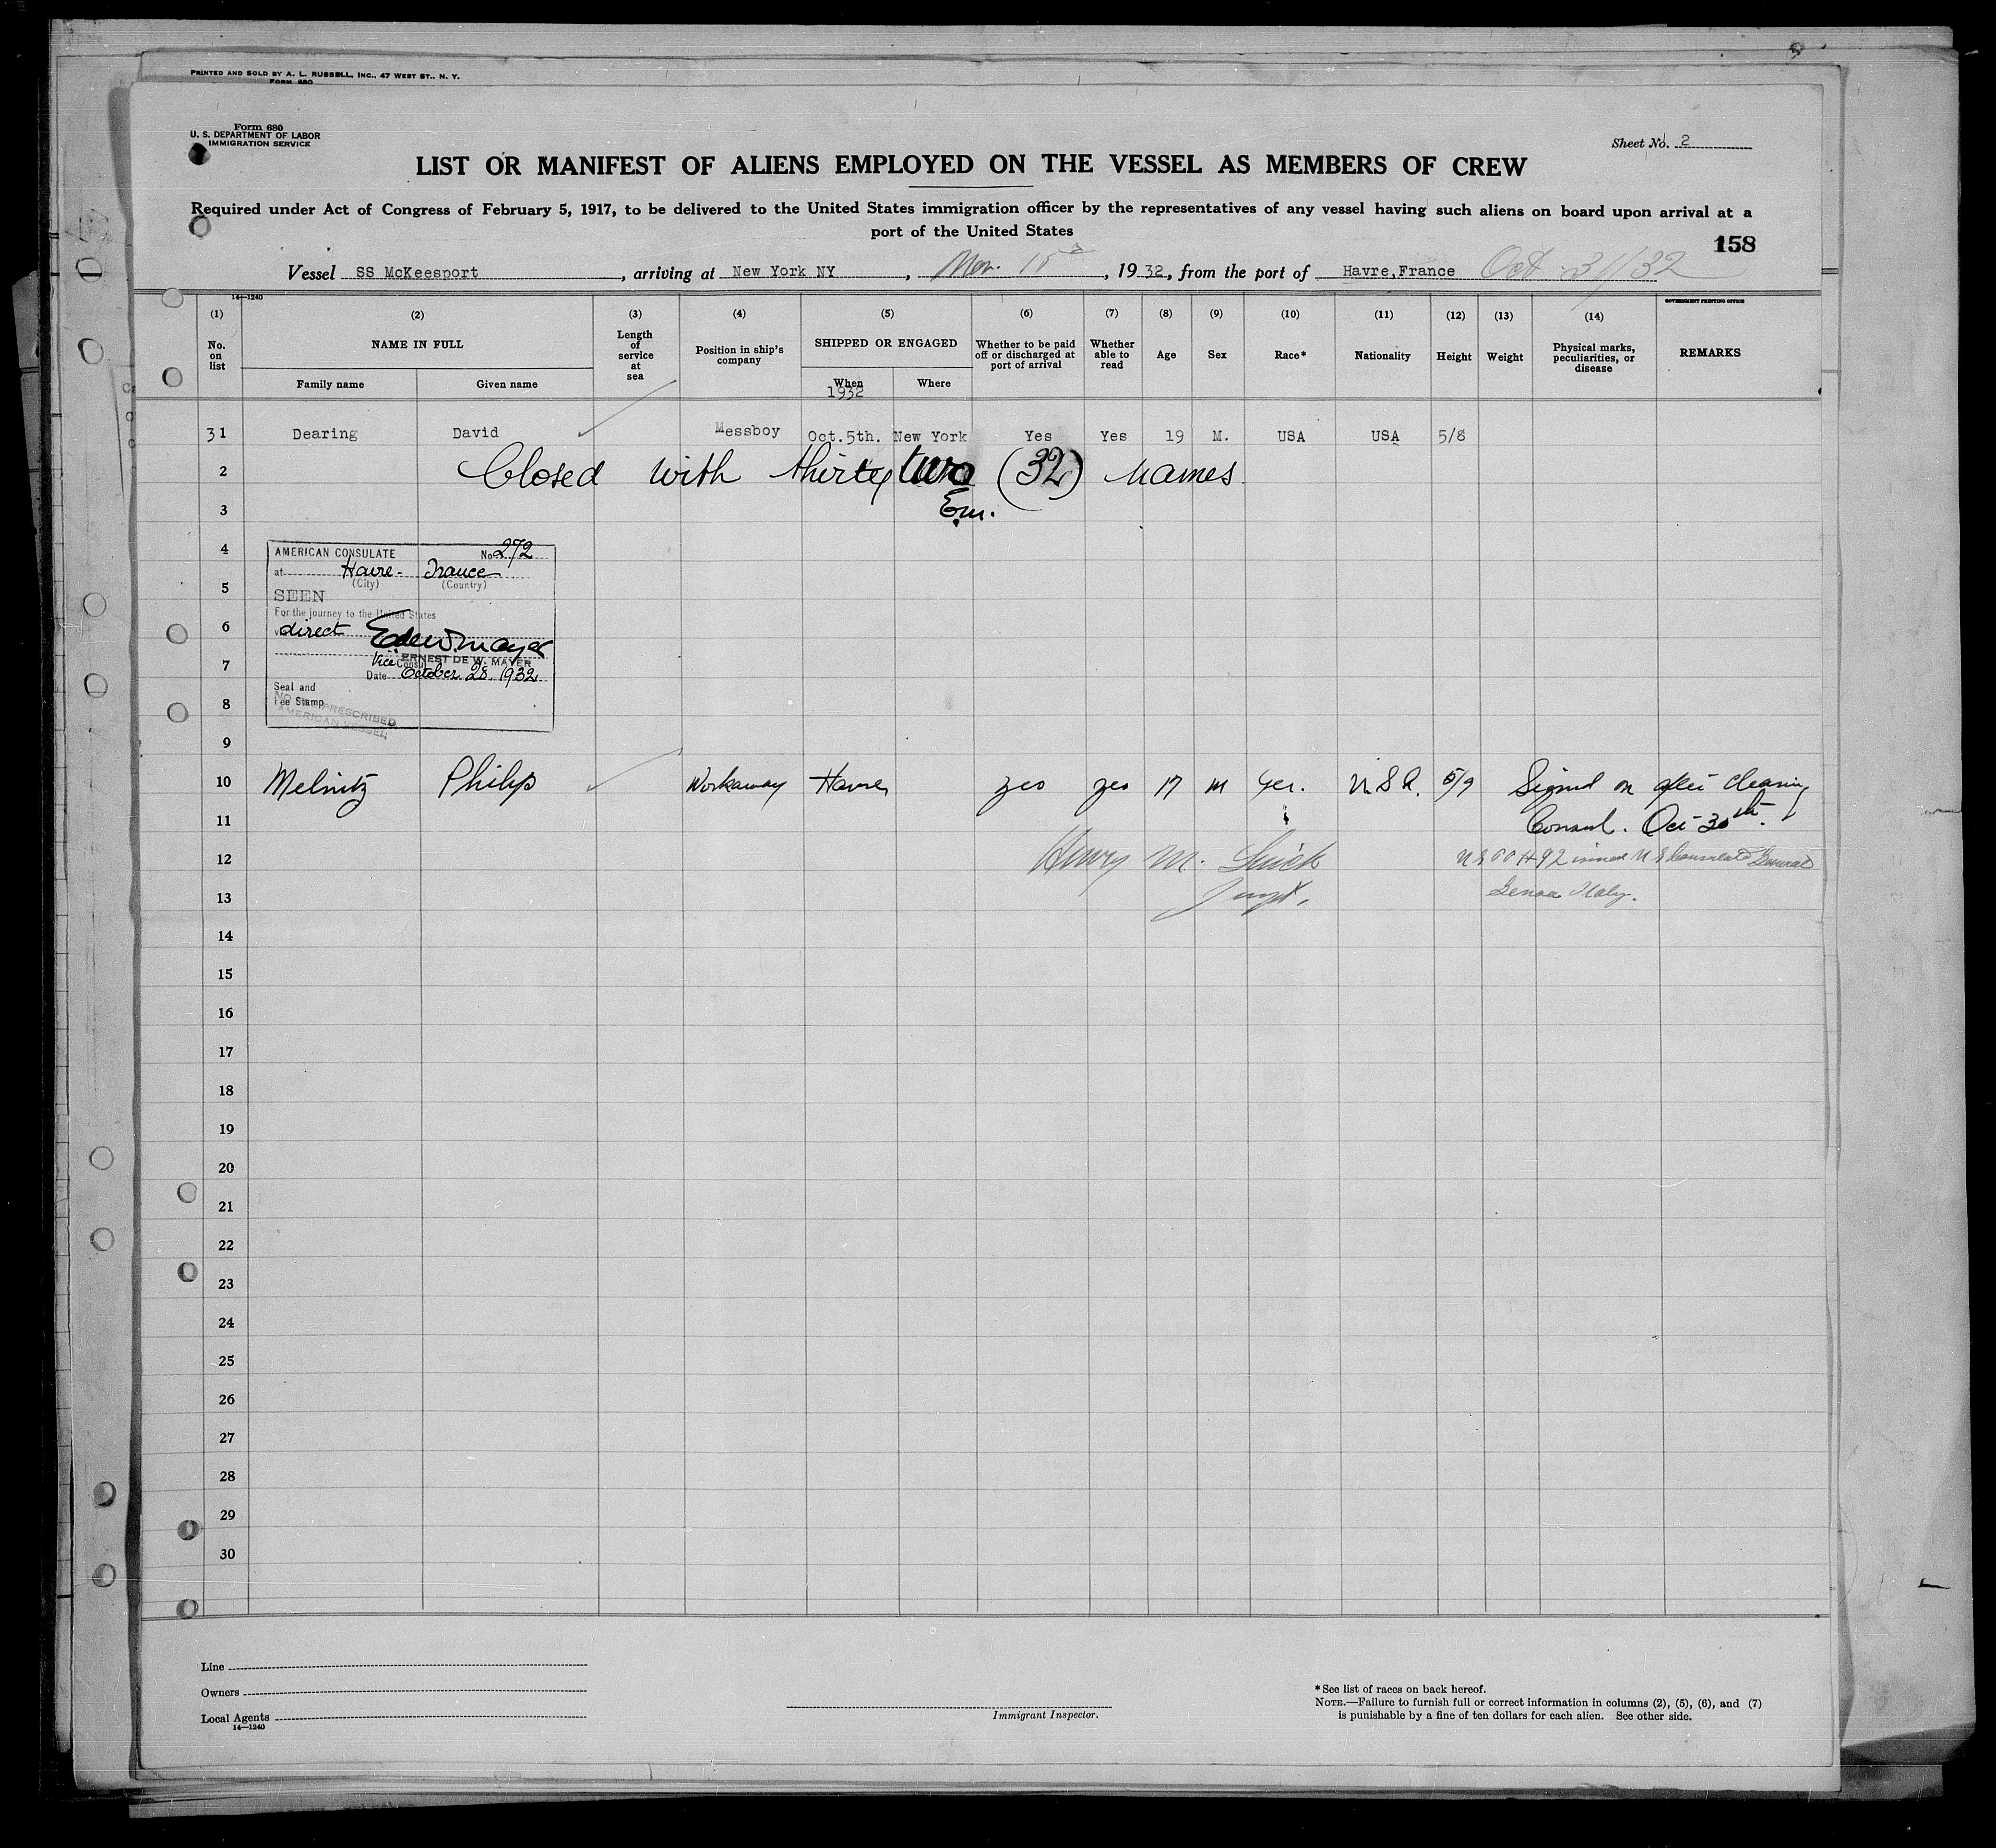 PRINTED AND SOLD BY A. L. RUSSELL, INC., 47 WEST ST., N. Y.
FORM 680
Form 680
U. S. DEPARTMENT OF LABOR
IMMIGRATION SERVICE
Sheet No. 2
LIST OR MANIFEST OF ALIENS EMPLOYED ON THE VESSEL AS MEMBERS OF CREW
Required under Act of Congress of February 5, 1917, to be delivered to the United States immigration officer by the representatives of any vessel having such aliens on board upon arrival at a
port of the United States
158
Vessel SS McKeesport, arriving at New York NY, Nov. 15, 1932, from the port of Havre,France Oct 31/32
14—1240
GOVERNMENT PRINTING OFFICE
(1) (2) (3) (4) (5) (6) (7) (8) (9) (10) (11) (12) (13) (14)
No. on list NAME IN FULL Length of service at sea Position in ship's company SHIPPED OR ENGAGED Whether to be paid off or discharged at port of arrival Whether able to read Age Sex Race* Nationality Height Weight Physical marks, peculiarities, or disease REMARKS
Family name Given name When Where
1932
31 Dearing David Messboy Oct.5th. New York Yes Yes 19 M. USA USA 5/8
2 Closed with thirty two (32) names
3 Em.
4 AMERICAN CONSULATE No. 272
at Havre - France
(City) (Country)
5 SEEN
For the journey to the United States
6 direct
7 ERNEST DE W. MAYER
Vice Consul
Date October 28. 1932
Seal and
8 Fee Stamp
NO FEE PRESCRIBED
AMERICAN VESSEL
9
10 Melnitz Philip Workaway Havre yes yes 17 M Ger. U.S.A. 5/9 Signed on after clearing
11 Consul. Oct 30th.
12 Henry M. issued U S Consulate General
13 Genoa Italy.
14
15
16
17
18
19
20
21
22
23
24
25
26
27
28
29
30
Line
Owners
Local Agents
14—1240
Immigrant Inspector.
*See list of races on back hereof.
NOTE.—Failure to furnish full or correct information in columns (2), (5), (6), and (7)
is punishable by a fine of ten dollars for each alien. See other side.